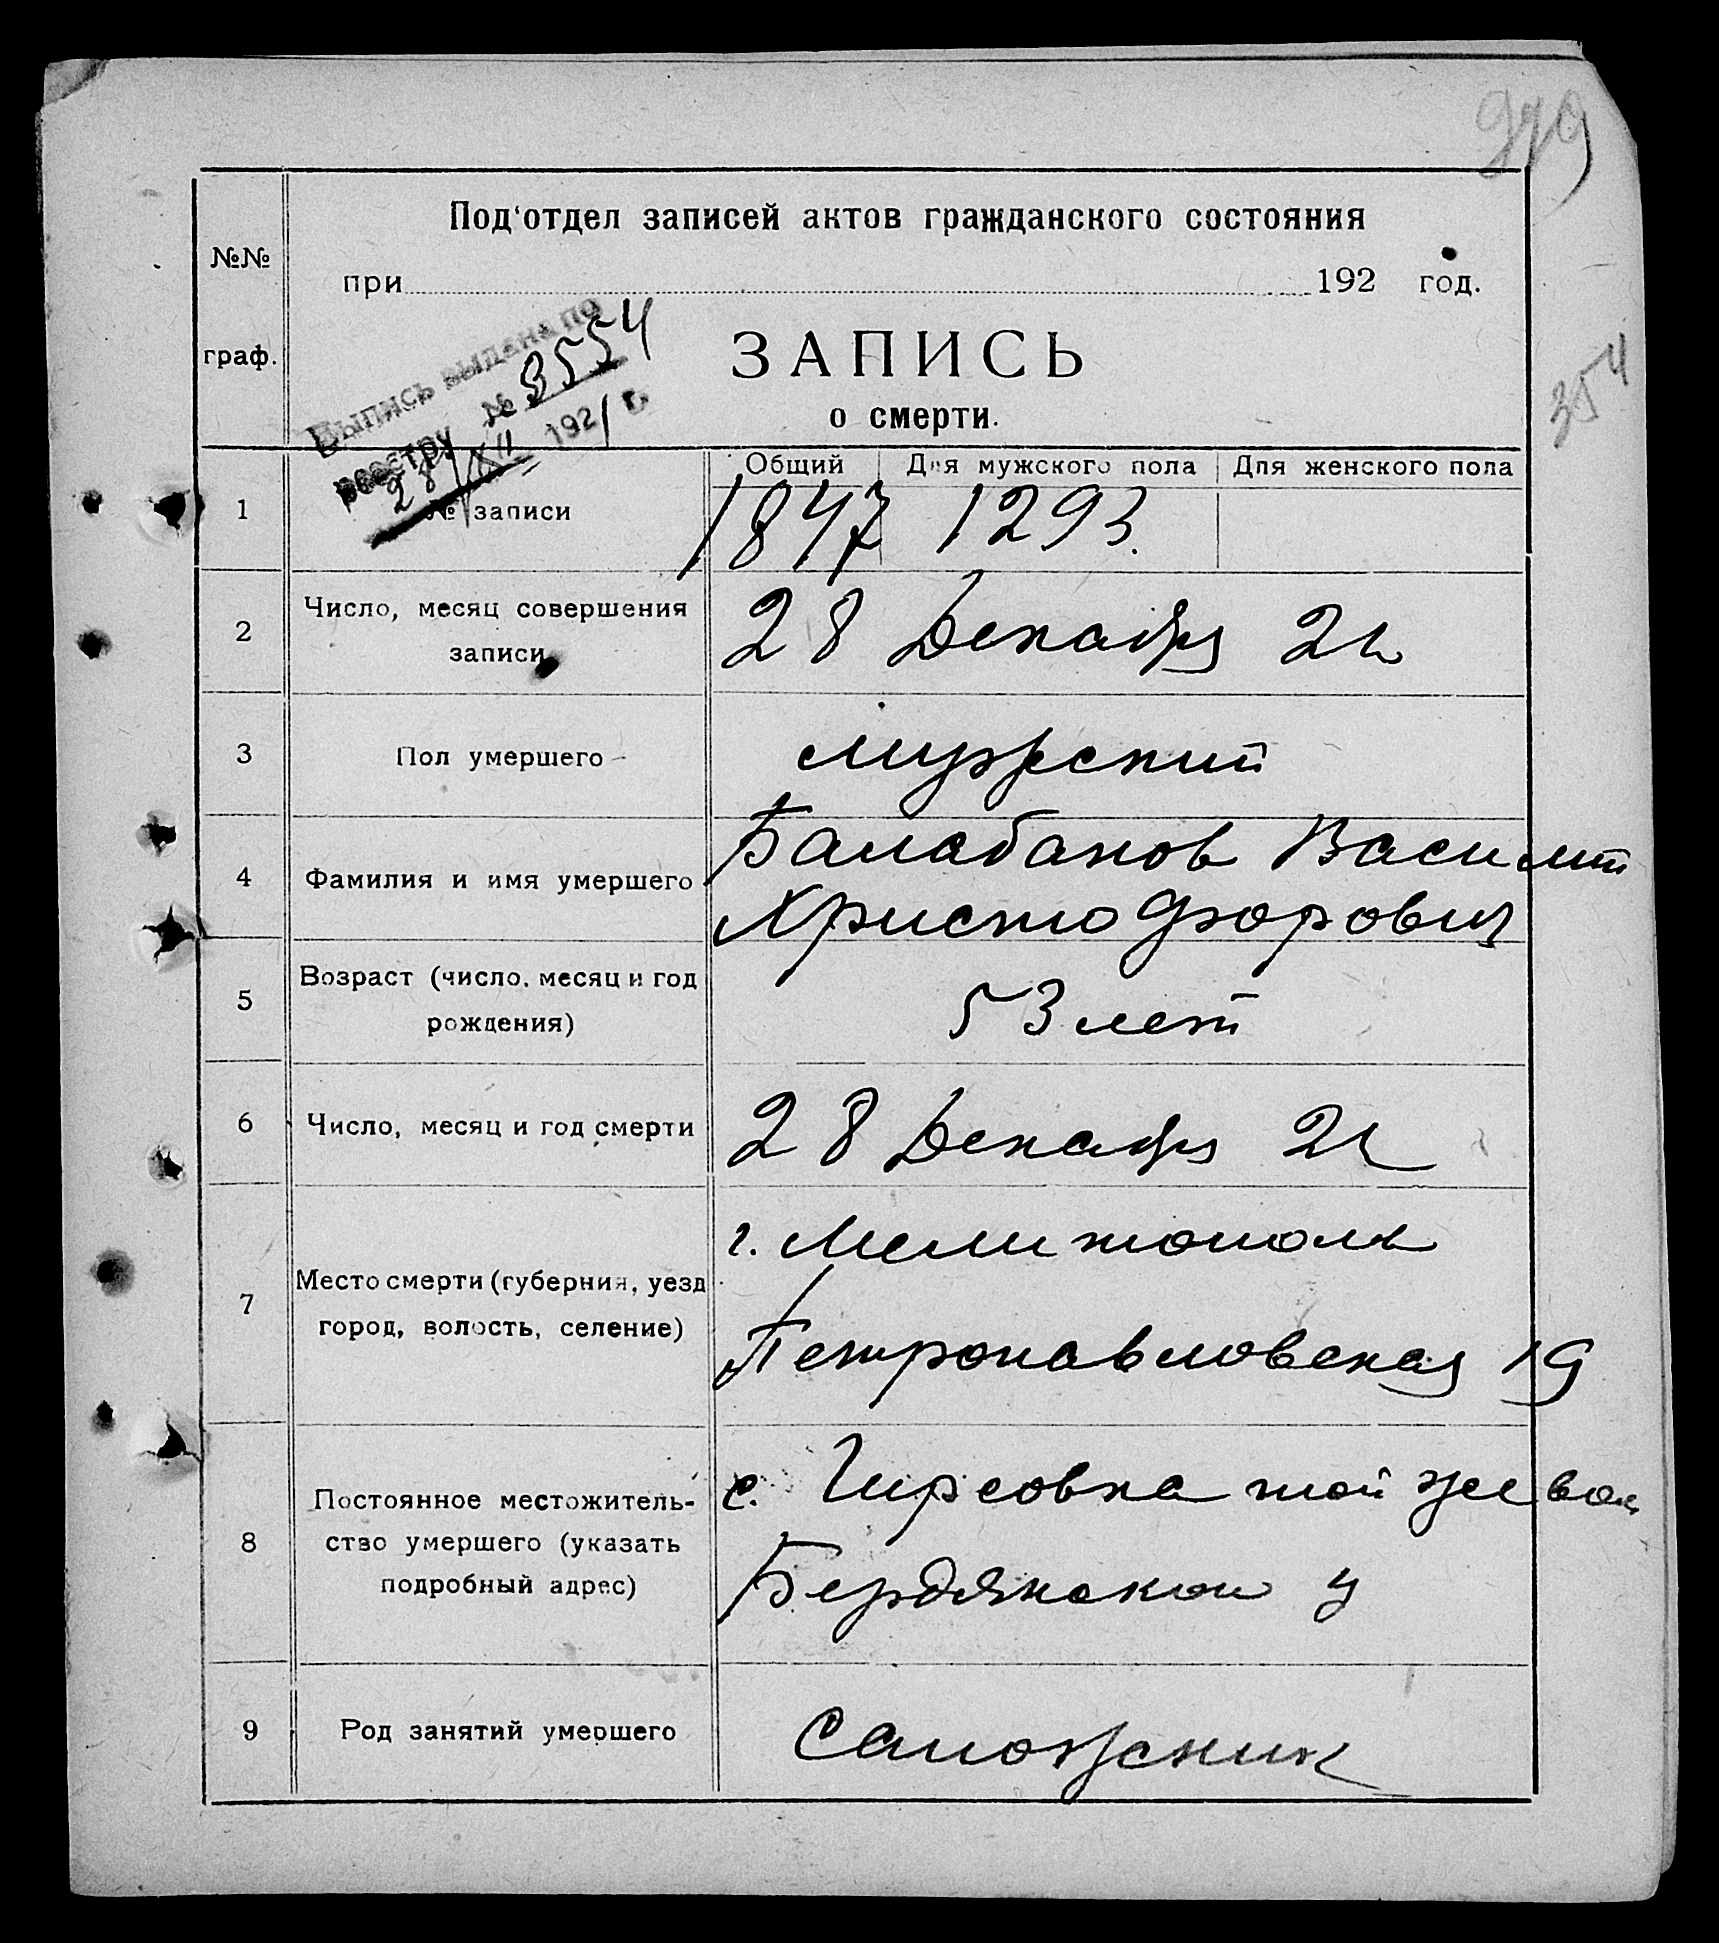 979
354
Под‘отдел записей актов гражданского состояния
№№
при 192 год.
граф.
ЗАПИСЬ
о смерти.
Выпись выдана по
реестру № 3554
28/XII 1921 г.
Общий Для мужского пола Для женского пола
1 № записи 1847 1293.
2 Число, месяц совершения
записи
28 Декабря 21
3 Пол умершего мужской
4 Фамилия и имя умершего
Балабанов Василий
Христофорович
5 Возраст (число, месяц и год
рождения)
53 лет
6 Число, месяц и год смерти 28 Декабря 21
7 Место смерти (губерния, уезд
город, волость, селение)
г. Мелитополь
Петропавловская 19
8 Постоянное местожитель-
ство умершего (указать
подробный адрес)
с. Гирсовка той же вол
Бердянской у
9 Род занятий умершего Сапожник